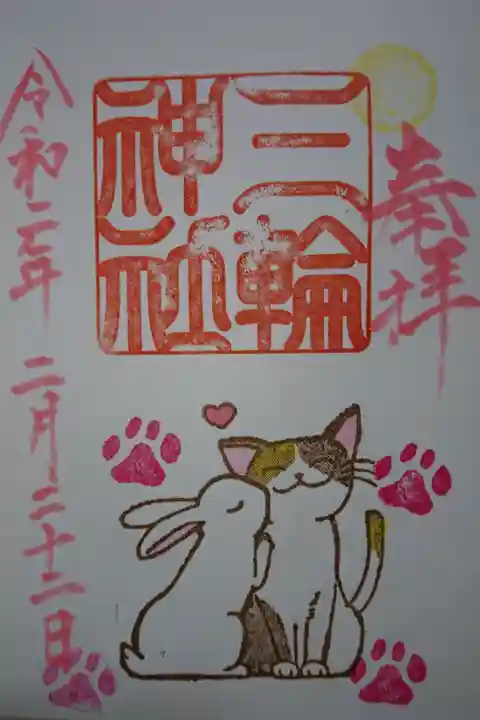 奉拝
三輪
神社
令和二年 二月二十二日